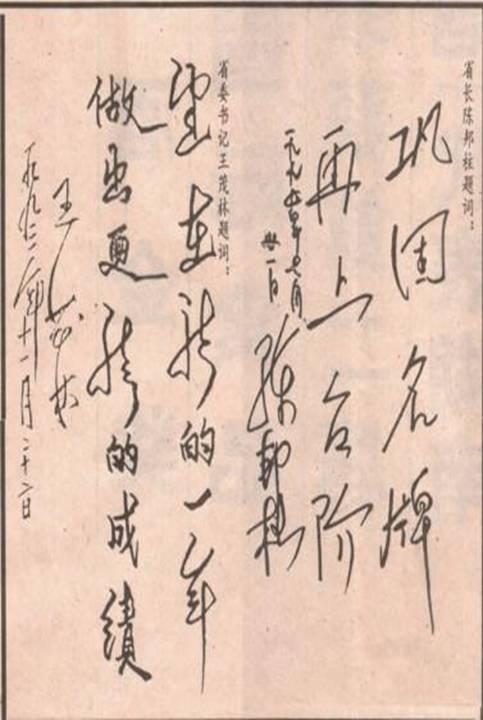 省长陈邦柱题词：
巩固名牌
再上台阶
一九九 年七月
卅一日
陈邦柱
省委书记王茂林题词：
望在新的一年
做出更新的成绩
王茂林
一九九三年十一月二十 日